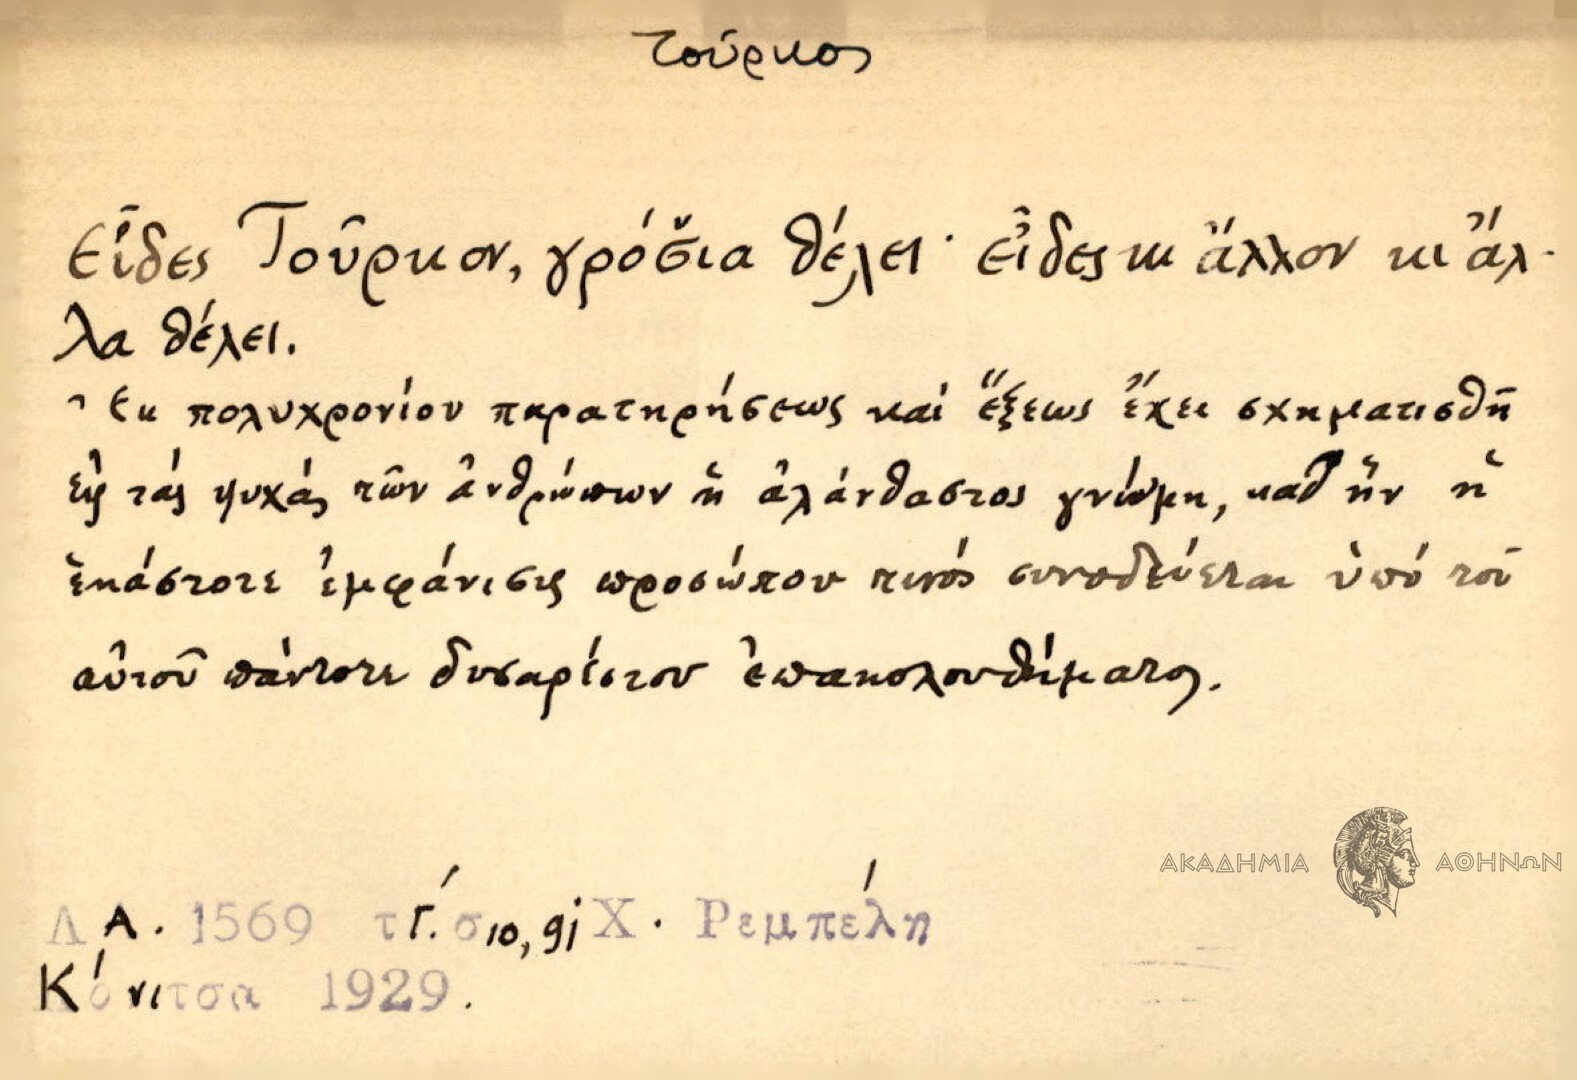 Τούρκος
Εἶδες Τοῦρκον, γρόσ̌ια θέλει· εἶδες κι ἄλλον κι ἄλ-
λα θέλει.
Ἐκ πολυχρονίου παρατηρήσεως καὶ ἕξεως ἔχει σχηματισθῆ
εἰς τὰς ψυχὰς τῶν ἀνθρώπων ἡ ἀλάνθαστος γνώμη, καθ' ἣν ἡ
ἑκάστοτε ἐμφάνισις προσώπου τινός συνοδεύεται ὑπό τοῦ
αὐτοῦ πάντοτε δυσαρέστου ἐπακολουθήματος.
ΑΚΑΔΗΜΙΑ ΑΘΗΝΩΝ
Λ Α. 1569 τ Γ́. σ 10, 91 Χ. Ρεμπέλη
Κόνιτσα 1929.